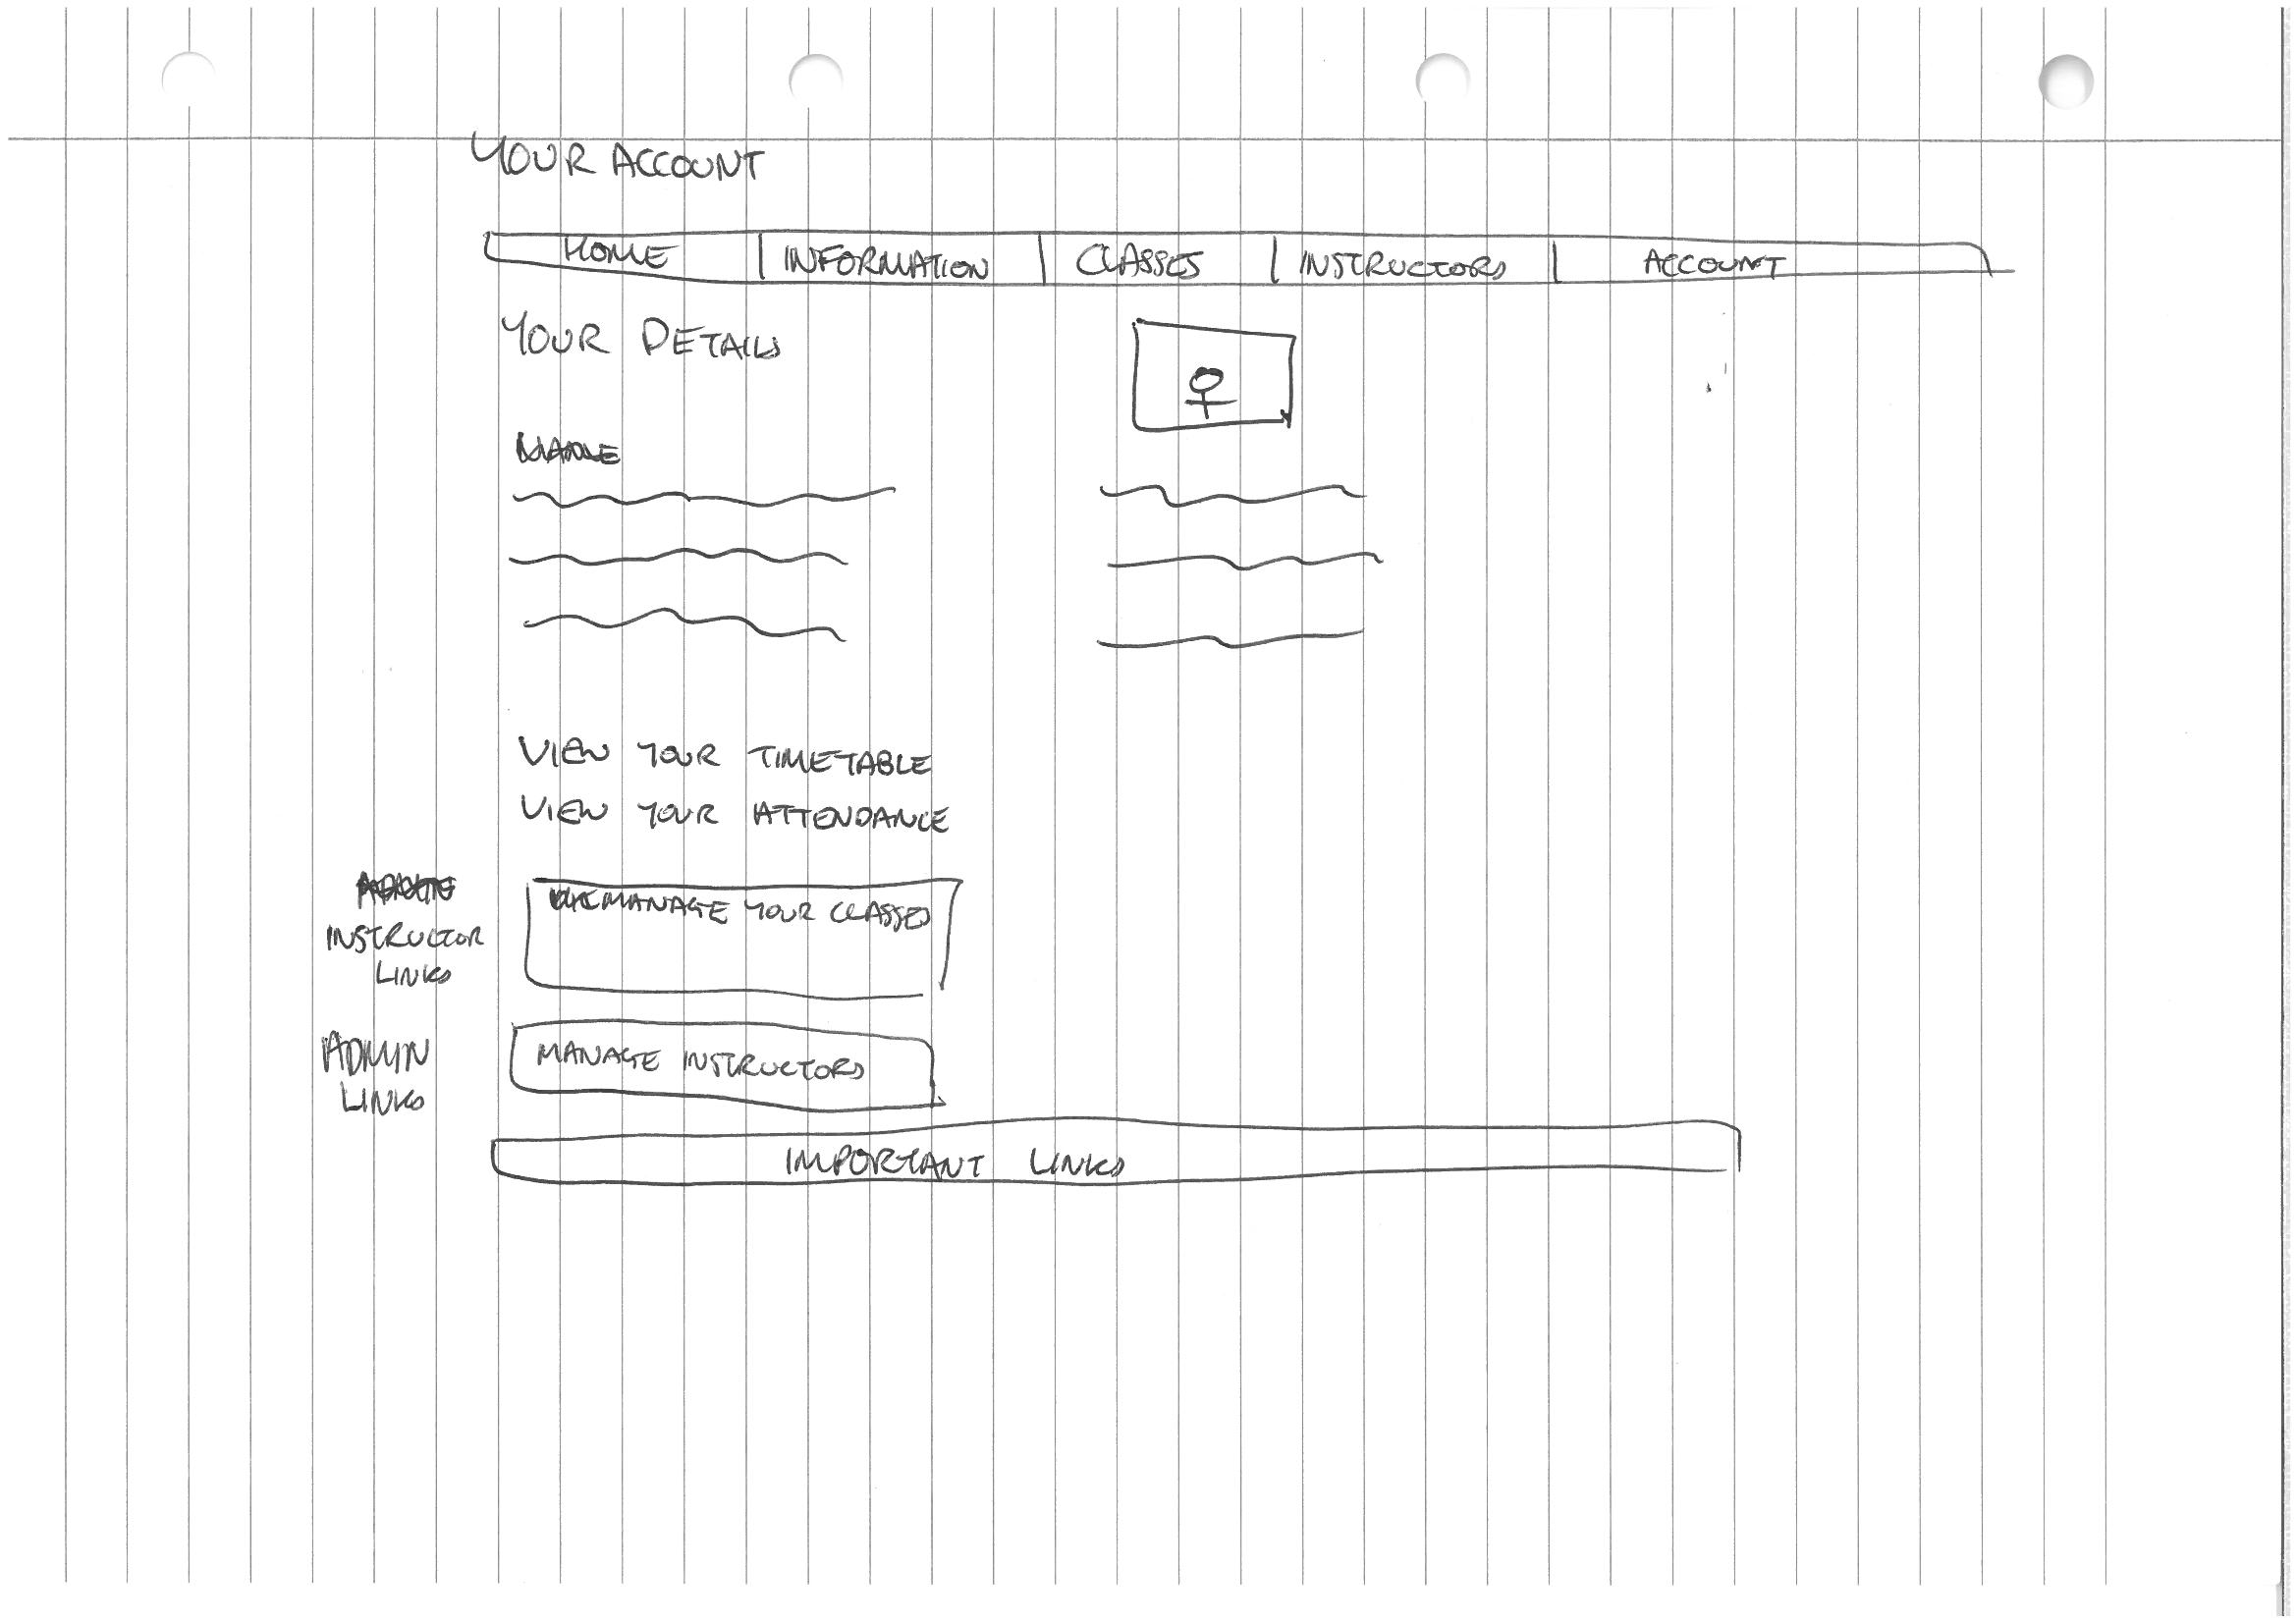 YOUR ACCOUNT
HOME INFORMATION CLASSES INSTRUCTORS ACCOUNT
YOUR DETAILS
VIEW YOUR TIMETABLE
VIEW YOUR ATTENDANCE
INSTRUCTOR
LINKS
MANAGE YOUR CLASSES
ADMIN
LINKS
MANAGE INSTRUCTORS
IMPORTANT LINKS